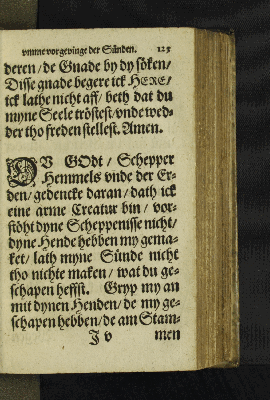 vmme vorgevinge der Sünden. 125
deren / de Gnade by dy söken /
Disse gnade begere ick HERE /
ick lathe nicht aff / beth dat du
myne Seele tröstest / vnde wed-
der tho freden stellest. Amen.
DV GOdt / Schepper
Hemmels vnde der Er-
den / gedencke daran / dath ick
eine arme Creatur bin / vor-
stöht dyne Scheppenisse nicht /
dyne Hende hebben my gema-
ket / lath myne Sünde nicht
tho nichte maken / wat du ge-
schapen heffst. Gryp my an
mit dynen Henden / de my ge-
schapen hebben / de am Stam-
J v men